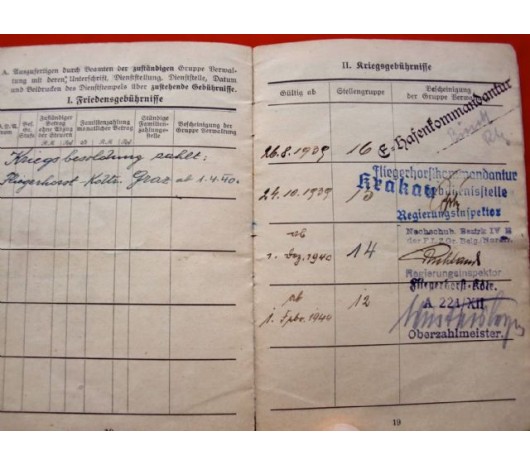 A. Auszufertigen durch Beamten der zuständigen Gruppe Verwal-
tung mit deren Unterschrift, Dienststellung, Dienststelle, Datum
und Beidrucken des Dienststempels über zustehende Gebührnisse.
I. Friedensgebührnisse
Zuständiger
Betrag
ohne Abzug
der Steuern
Familienzahlung
Monatlicher Betrag
Ständige
Familien-
zahlungs-
stelle
Bescheinigung der
Gruppe Verwaltung
Kriegsbesoldung zahlt:
Fliegerhorst-Kdtr. Graz ab 1.4.40.
II. Kriegsgebührnisse
Gültig ab
Stellengruppe
Bescheinigung
der Gruppe Verwaltung
26.8.1939
16
E. Hafenkommandantur
24.10.1939
15
Fliegerhorstkommandantur
Krakau
Gebührnisstelle
Regierungsinspektor
ab
1. Dez. 1940
14
Nachschub. Bezirk IV
Regierungsinspektor
ab
1. Febr. 1944
12
Fliegerhorst-Kdr.
A 221/XII
Oberzahlmeister.
19